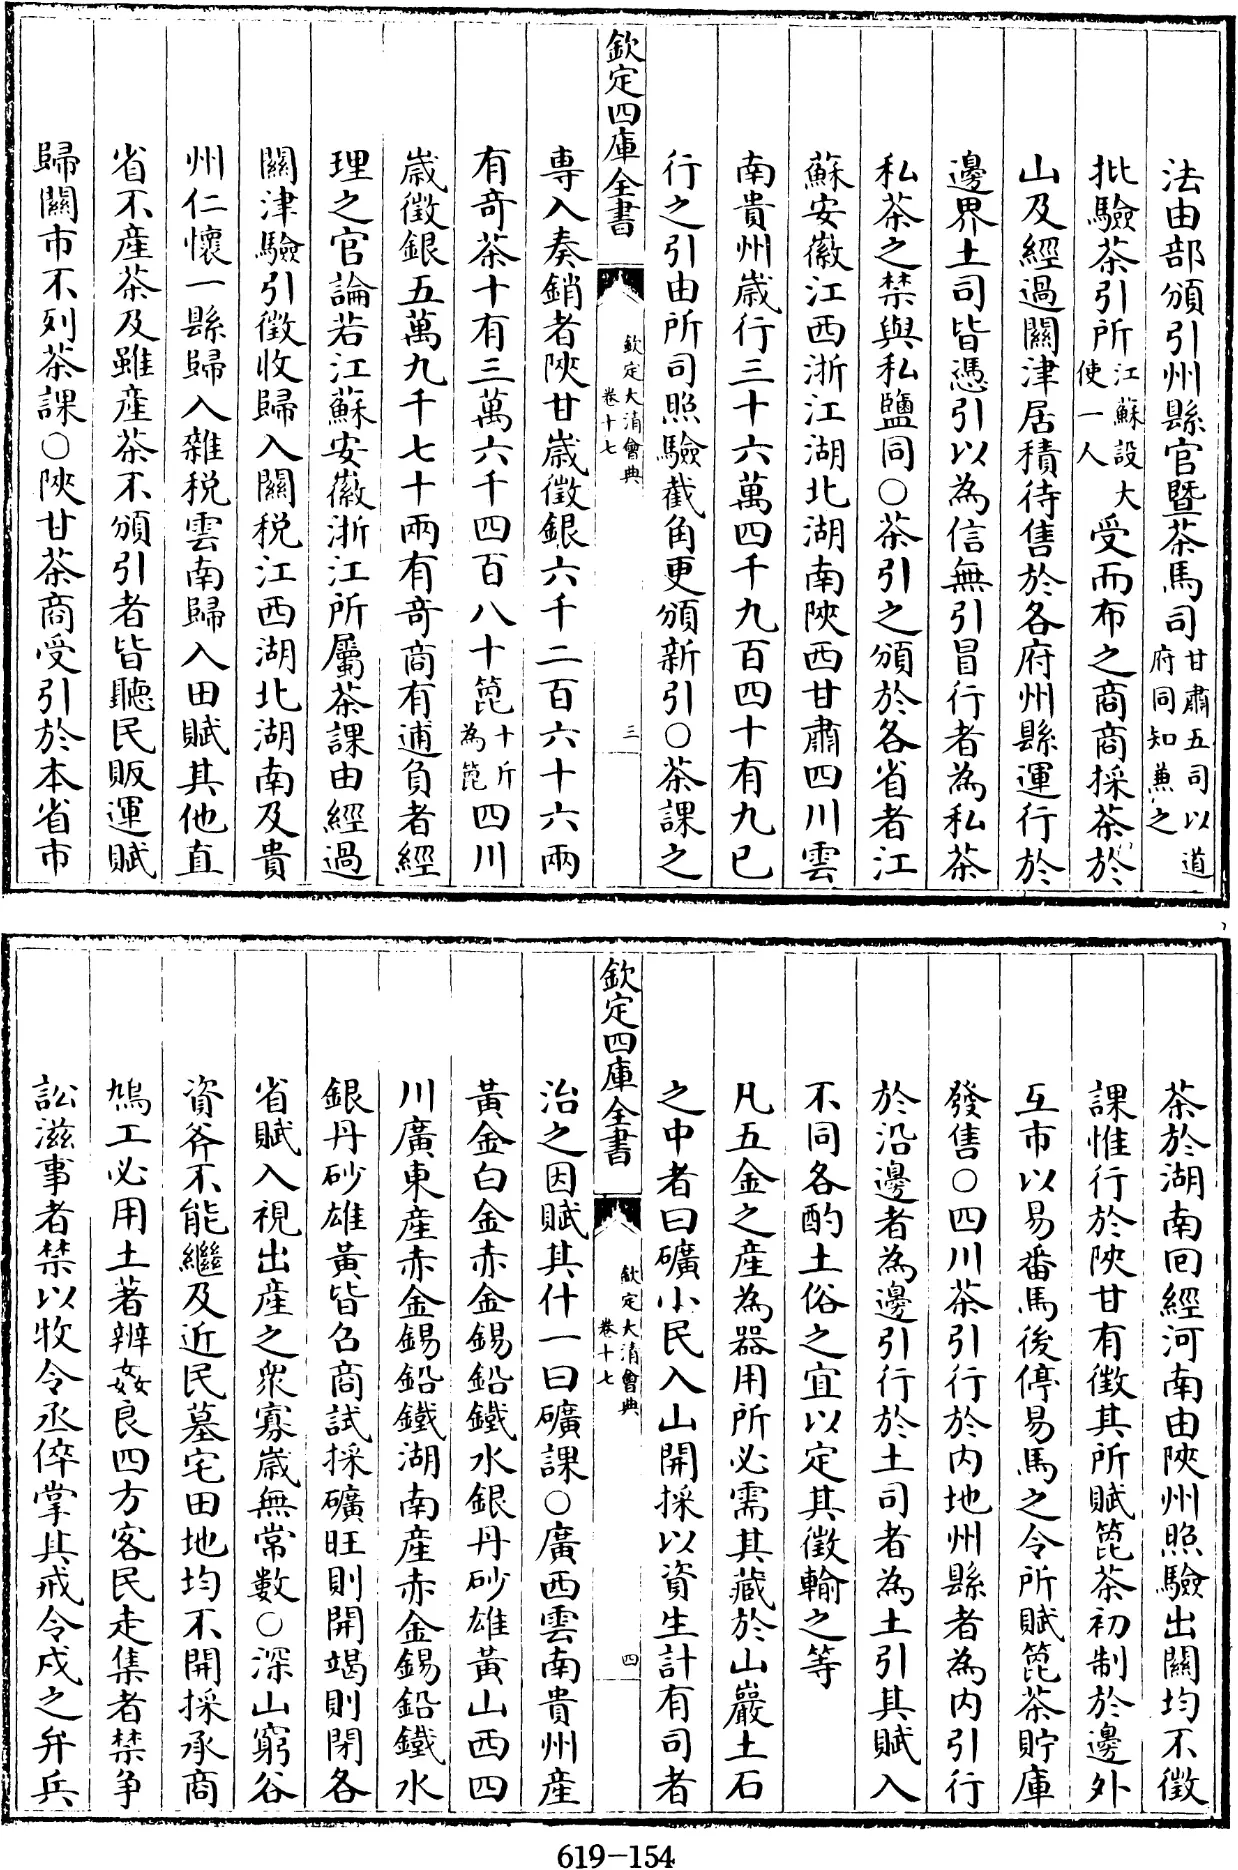 法由部頒引州縣官暨茶馬司甘肅五司以道府同知兼之
批驗茶引所江蘇設大使一人受而布之商商採茶於
山及經過關津居積待售於各府州縣運行於
邊界土司皆憑引以為信無引冒行者為私茶
私茶之禁與私鹽同○茶引之頒於各省者江
蘇安徽江西浙江湖北湖南陜西甘肅四川雲
南貴州歲行三十六萬四千九百四十有九已
行之引由所司照驗截角更頒新引○茶課之
欽定四庫全書
欽定大清會典
卷十七
三
專入奏銷者陜甘歲徵銀六千二百六十六兩
有奇茶十有三萬六千四百八十篦十斤為篦四川
歲徵銀五萬九千七十兩有奇商有逋負者經
理之官論若江蘇安徽浙江所屬茶課由經過
關津驗引徵收歸入關稅江西湖北湖南及貴
州仁懷一縣歸入雜稅雲南歸入田賦其他直
省不產茶及雖產茶不頒引者皆聽民販運賦
歸關市不列茶課○陜甘茶商受引於本省市
茶於湖南回經河南由陜州照驗出關均不徵
課惟行於陜甘有徵其所賦篦茶初制於邊外
互市以易番馬後停易馬之令所賦篦茶貯庫
發售○四川茶引行於內地州縣者為內引行
於沿邊者為邊引行於土司者為土引其賦入
不同各酌土俗之宜以定其徵輸之等
凡五金之產為器用所必需其藏於山巖土石
之中者曰礦小民入山開採以資生計有司者
欽定四庫全書
欽定大清會典
卷十七
四
治之因賦其什一曰礦課○廣西雲南貴州產
黃金白金赤金錫鉛鐵水銀丹砂雄黃山西四
川廣東產赤金錫鉛鐵湖南產赤金錫鉛鐵水
銀丹砂雄黃皆召商試採礦旺則開竭則閉各
省賦入視出產之衆寡歲無常數○深山窮谷
資斧不能繼及近民墓宅田地均不開採承商
鳩工必用土著辨姦良四方客民走集者禁爭
訟滋事者禁以牧令丞倅掌其戒令戍之弁兵
619-154